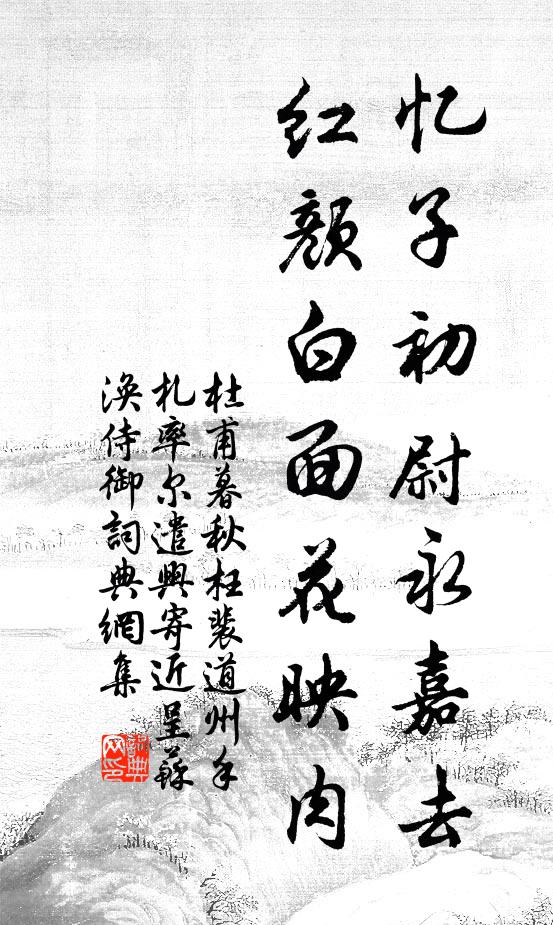 忆子初尉永嘉去
红颜白面花映肉
杜甫暮秋枉裴道州手
札率尔遣兴寄近呈苏
涣侍御词典網集
詞典
网印